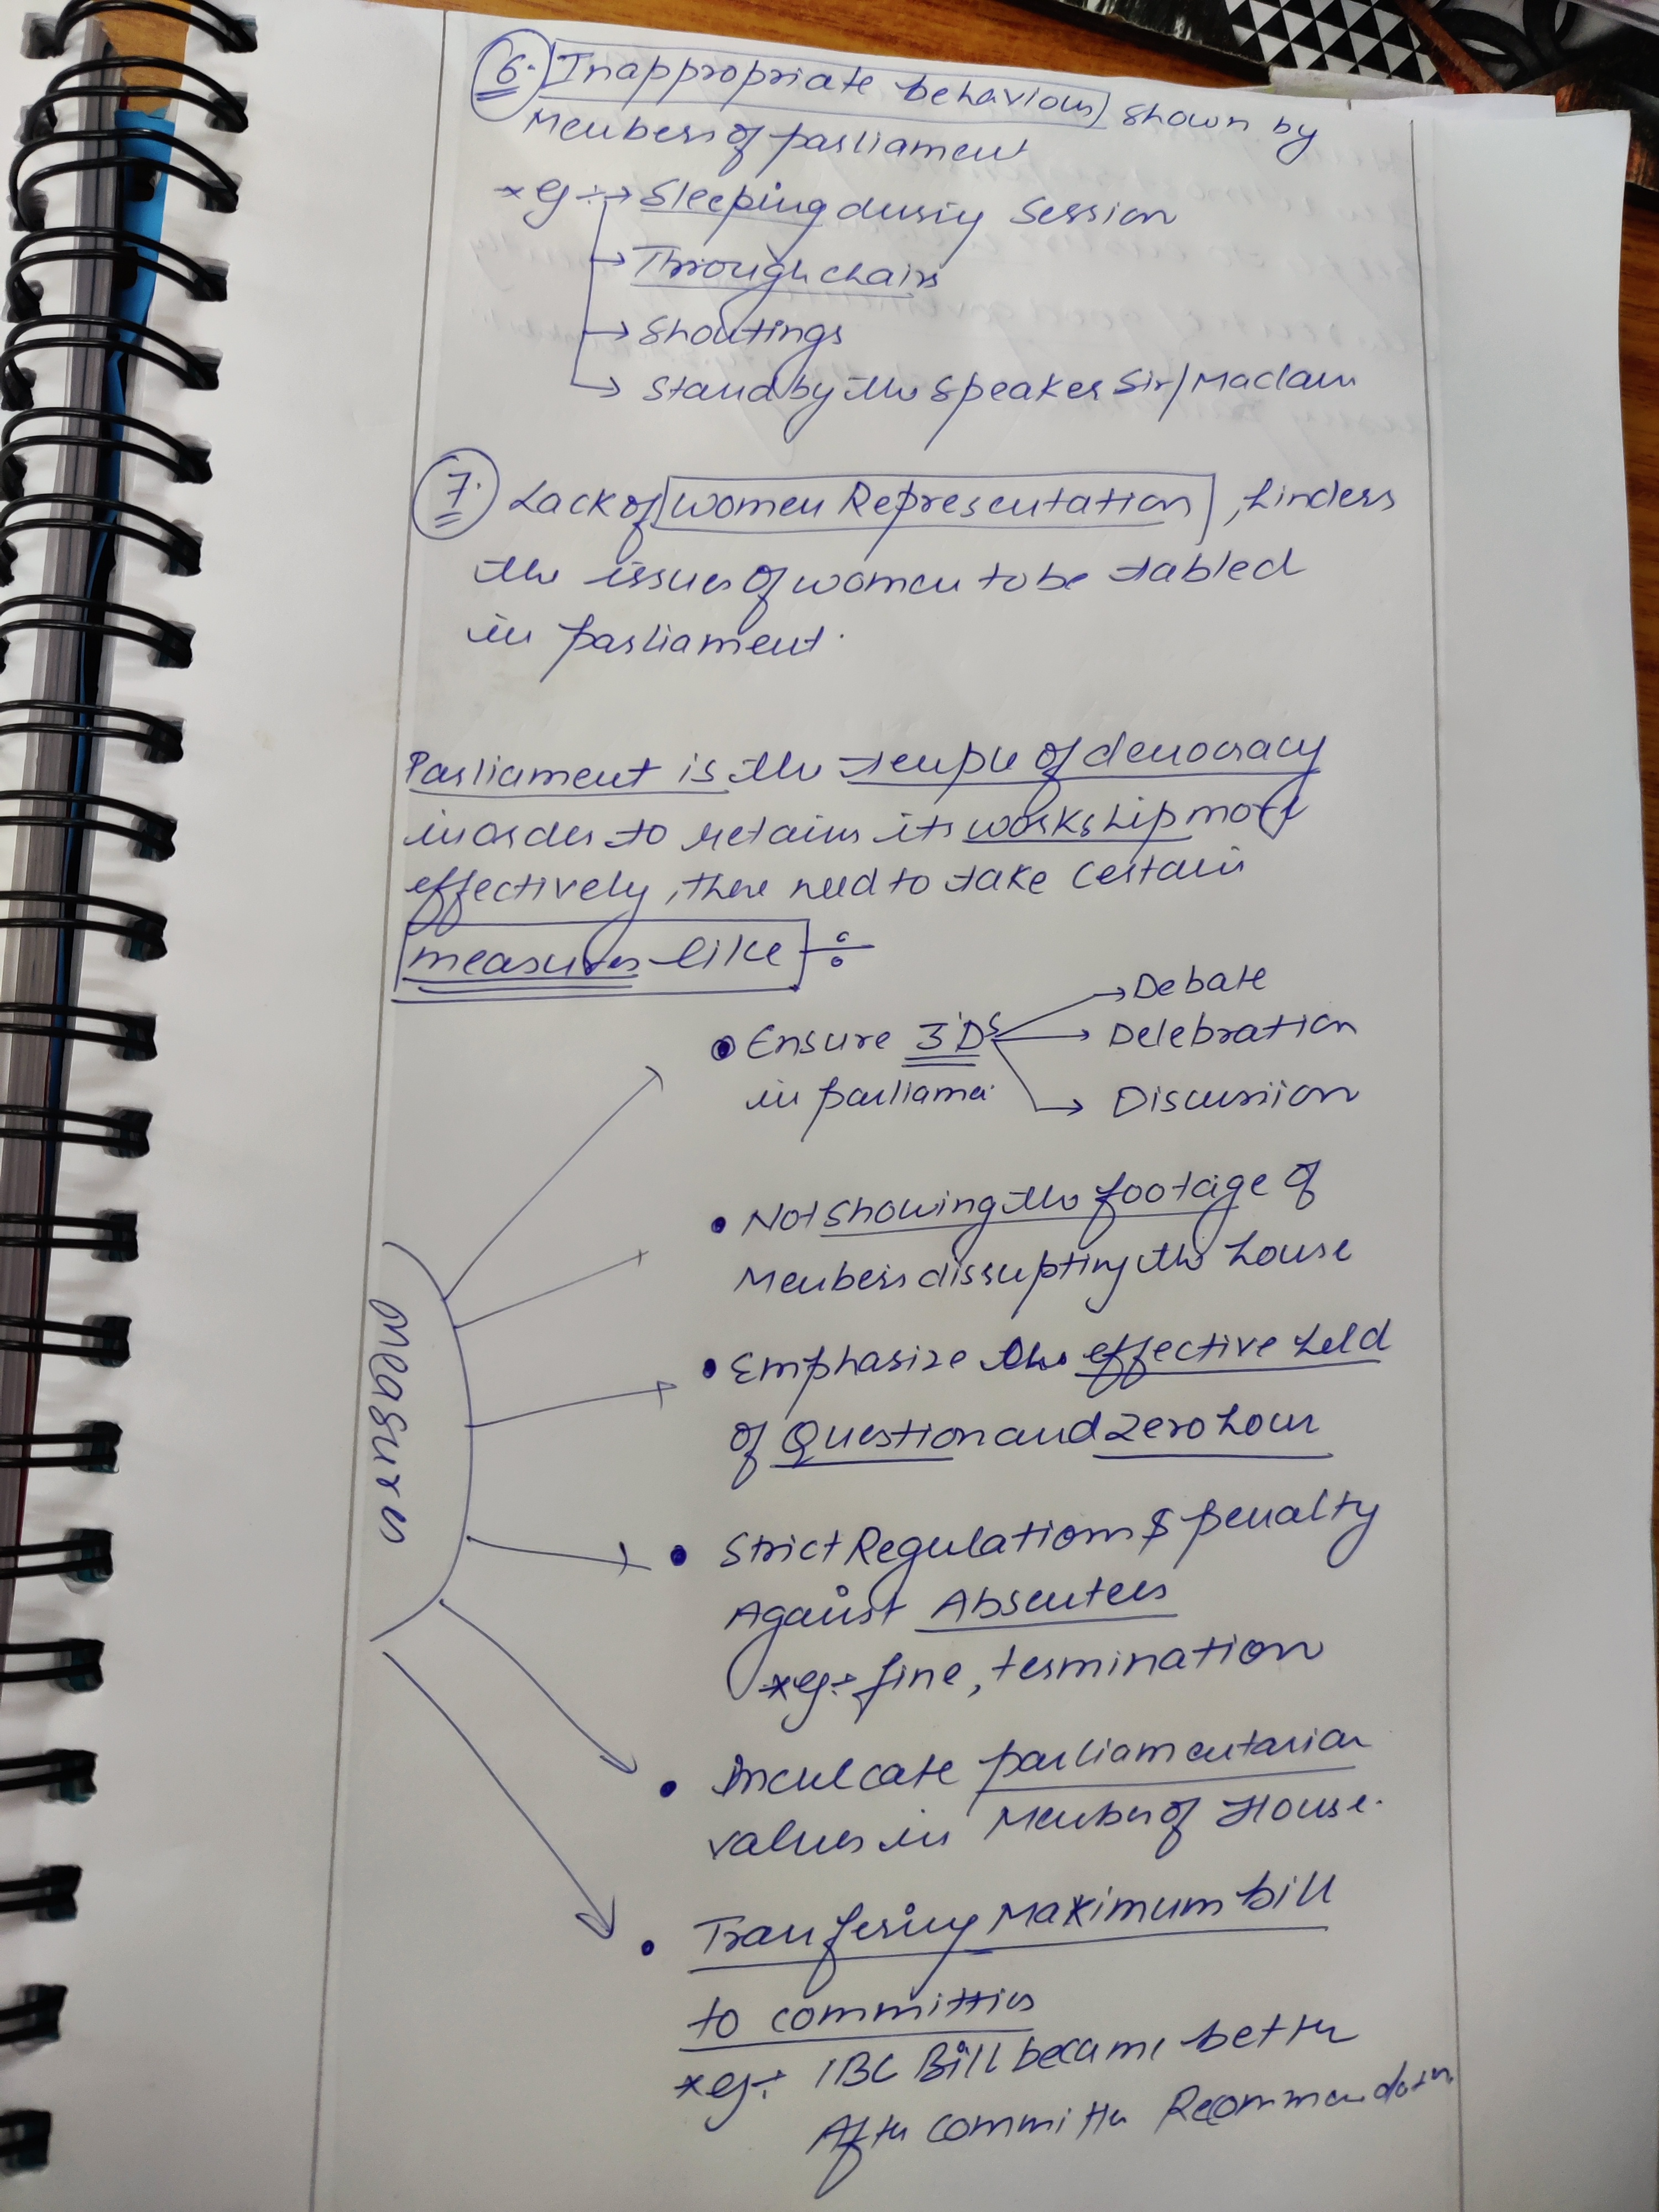 6. Inappropriate behaviour shown by
Members of parliament
*eg :- → Sleeping during Session
→ Through chairs
→ Shoutings
→ Stand by the Speaker Sir/Madam
7. Lack of women Representation, hinders
the issues of women to be tabled
in parliament.
Parliament is the temple of democracy
in order to retain its workship more
effectively, there need to take certain
measures like :-
• Ensure 3'Ds → Debate
→ Delebration
in parliame → Discussion
• Not showing the footage of
Members disrupting the house
• Emphasize the effective held
of Question and zero hour
measures
• Strict Regulations & penalty
Against Absentees
*eg :- fine, termination
• Inculcate parliamentarian
values in Member of House.
• Tranfering Maximum bill
to committies
*eg :- IBC Bill became better
After committee Recommendation